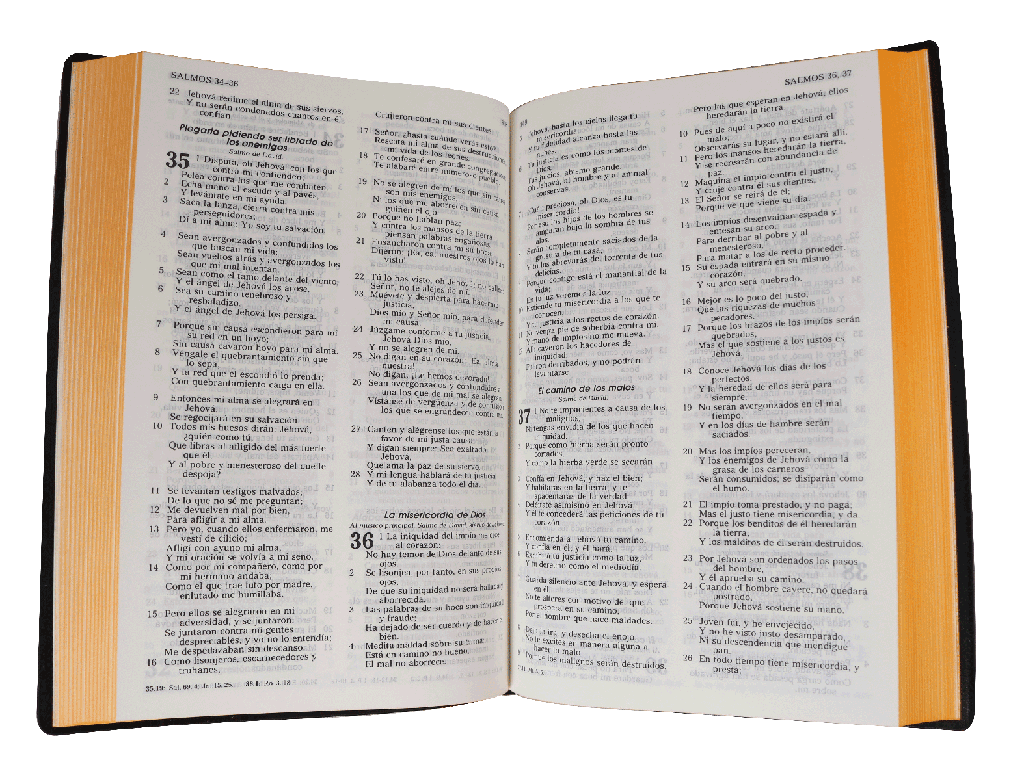 SALMOS 34–36
22 Jehová redime el alma de sus siervos,
Y no serán condenados cuantos en él
confían.
Plegaria pidiendo ser librado de
los enemigos
Salmo de David.
35 1 Disputa, oh Jehová, con los que
contra mí contienden;
Pelea contra los que me combaten.
2 Echa mano al escudo y al pavés,
Y levántate en mi ayuda.
3 Saca la lanza, cierra contra mis
perseguidores;
Di a mi alma: Yo soy tu salvación.
4 Sean avergonzados y confundidos los
que buscan mi vida;
Sean vueltos atrás y avergonzados los
que mi mal intentan.
5 Sean como el tamo delante del viento,
Y el ángel de Jehová los acose.
6 Sea su camino tenebroso y
resbaladizo,
Y el ángel de Jehová los persiga.
7 Porque sin causa escondieron para mí
su red en un hoyo;
Sin causa cavaron hoyo para mi alma.
8 Véngale el quebrantamiento sin que
lo sepa,
Y la red que él escondió lo prenda;
Con quebrantamiento caiga en ella.
9 Entonces mi alma se alegrará en
Jehová;
Se regocijará en su salvación.
10 Todos mis huesos dirán: Jehová,
¿quién como tú,
Que libras al afligido del más fuerte
que él,
Y al pobre y menesteroso del que le
despoja?
11 Se levantan testigos malvados;
De lo que no sé me preguntan;
12 Me devuelven mal por bien,
Para afligir a mi alma.
13 Pero yo, cuando ellos enfermaron, me
vestí de cilicio;
Afligí con ayuno mi alma,
Y mi oración se volvía a mi seno.
14 Como por mi compañero, como por
mi hermano andaba;
Como el que trae luto por madre,
enlutado me humillaba.
15 Pero ellos se alegraron en mi
adversidad, y se juntaron;
Se juntaron contra mí gentes
despreciables, y yo no lo entendía;
Me despedazaban sin descanso;
16 Como lisonjeros, escarnecedores y
truhanes,
Crujieron contra mí sus dientes.
17 Señor, ¿hasta cuándo verás esto?
Rescata mi alma de sus destrucciones,
mi vida de los leones.
18 Te confesaré en grande congregación;
Te alabaré entre numeroso pueblo.
19 No se alegren de mí los que sin causa
son mis enemigos,
Ni los que me aborrecen sin causa
guiñen el ojo.
20 Porque no hablan paz;
Y contra los mansos de la tierra
piensan palabras engañosas.
21 Ensancharon contra mí su boca;
Dijeron: ¡Ea, ea, nuestros ojos lo han
visto!
22 Tú lo has visto, oh Jehová; no calles;
Señor, no te alejes de mí.
23 Muévete y despierta para hacerme
justicia,
Dios mío y Señor mío, para defender
mi causa.
24 Júzgame conforme a tu justicia,
Jehová Dios mío,
Y no se alegren de mí.
25 No digan en su corazón: ¡Ea, alma
nuestra!
No digan: ¡Le hemos devorado!
26 Sean avergonzados y confundidos a
una los que de mi mal se alegran;
Vístanse de vergüenza y de confusión
los que se engrandecen contra mí.
27 Canten y alégrense los que están a
favor de mi justa causa,
Y digan siempre: Sea exaltado
Jehová,
Que ama la paz de su siervo.
28 Y mi lengua hablará de tu justicia
Y de tu alabanza todo el día.
La misericordia de Dios
Al músico principal. Salmo de David, siervo de Jehová.
36 1 La iniquidad del impío me dice
al corazón:
No hay temor de Dios delante de sus
ojos.
2 Se lisonjea, por tanto, en sus propios
ojos,
De que su iniquidad no será hallada y
aborrecida.
3 Las palabras de su boca son iniquidad
y fraude;
Ha dejado de ser cuerdo y de hacer el
bien.
4 Medita maldad sobre su cama;
Está en camino no bueno,
El mal no aborrece.
SALMOS 36, 37
Jehová, hasta los cielos llega tu
misericordia,
Y tu fidelidad alcanza hasta las
nubes.
Tu justicia es como los montes de
Dios,
Tus juicios, abismo grande.
Oh Jehová, al hombre y al animal
conservas.
¡Cuán preciosa, oh Dios, es tu
misericordia!
Por eso los hijos de los hombres se
amparan bajo la sombra de tus
alas.
Serán completamente saciados de la
grosura de tu casa,
Y tú los abrevarás del torrente de tus
delicias.
Porque contigo está el manantial de la
vida;
En tu luz veremos la luz.
10 Extiende tu misericordia a los que te
conocen,
Y tu justicia a los rectos de corazón.
11 No venga pie de soberbia contra mí,
Y mano de impíos no me mueva.
Allí cayeron los hacedores de
iniquidad;
Fueron derribados, y no podrán
levantarse.
El camino de los malos
Salmo de David.
37 1 No te impacientes a causa de los
malignos,
Ni tengas envidia de los que hacen
iniquidad.
Porque como hierba serán pronto
cortados,
Y como la hierba verde se secarán.
Confía en Jehová, y haz el bien;
Y habitarás en la tierra, y te
apacentarás de la verdad.
Deléitate asimismo en Jehová,
Y él te concederá las peticiones de tu
corazón.
Encomienda a Jehová tu camino,
Y confía en él; y él hará.
Exhibirá tu justicia como la luz,
Y tu derecho como el mediodía.
Guarda silencio ante Jehová, y espera
en él.
No te alteres con motivo del que
prospera en su camino,
Por el hombre que hace maldades.
Deja la ira, y desecha el enojo;
No te excites en manera alguna a
hacer lo malo.
Porque los malignos serán destruidos,
Pero los que esperan en Jehová, ellos
heredarán la tierra.
10 Pues de aquí a poco no existirá el
malo;
Observarás su lugar, y no estará allí.
11 Pero los mansos heredarán la tierra,
Y se recrearán con abundancia de
paz.
12 Maquina el impío contra el justo,
Y cruje contra él sus dientes;
13 El Señor se reirá de él;
Porque ve que viene su día.
14 Los impíos desenvainan espada y
entesan su arco,
Para derribar al pobre y al
menesteroso,
Para matar a los de recto proceder.
15 Su espada entrará en su mismo
corazón,
Y su arco será quebrado.
16 Mejor es lo poco del justo,
Que las riquezas de muchos
pecadores.
17 Porque los brazos de los impíos serán
quebrados;
Mas el que sostiene a los justos es
Jehová.
18 Conoce Jehová los días de los
perfectos,
Y la heredad de ellos será para
siempre.
19 No serán avergonzados en el mal
tiempo,
Y en los días de hambre serán
saciados.
20 Mas los impíos perecerán,
Y los enemigos de Jehová como la
grasa de los carneros
Serán consumidos; se disiparán como
el humo.
21 El impío toma prestado, y no paga;
Mas el justo tiene misericordia, y da.
22 Porque los benditos de él heredarán
la tierra;
Y los malditos de él serán destruidos.
23 Por Jehová son ordenados los pasos
del hombre,
Y él aprueba su camino.
24 Cuando el hombre cayere, no quedará
postrado,
Porque Jehová sostiene su mano.
25 Joven fui, y he envejecido,
Y no he visto justo desamparado,
Ni su descendencia que mendigue
pan.
26 En todo tiempo tiene misericordia, y
presta;